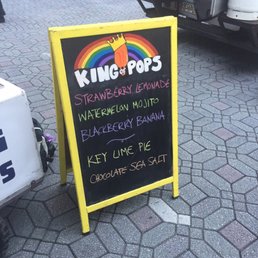 KING of POPS
STRAWBERRY LEMONADE
WATERMELON MOJITO
BLACKBERRY BANANA
KEY LIME PIE
CHOCOLATE SEA SALT